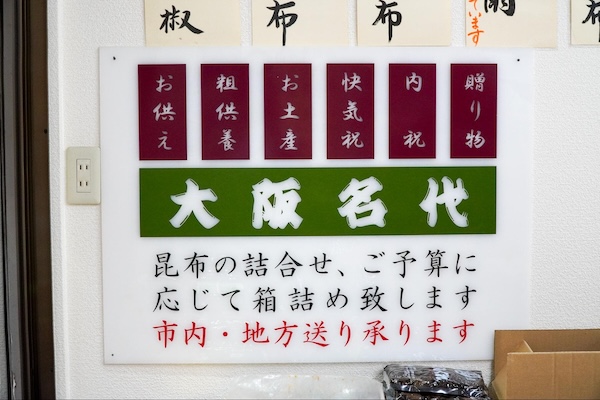 椒
布
布
ています
布
お供え
粗供養
お土産
快気祝
内祝
贈り物
大阪名代
昆布の詰合せ、ご予算に
応じて箱詰め致します
市内・地方送り承ります